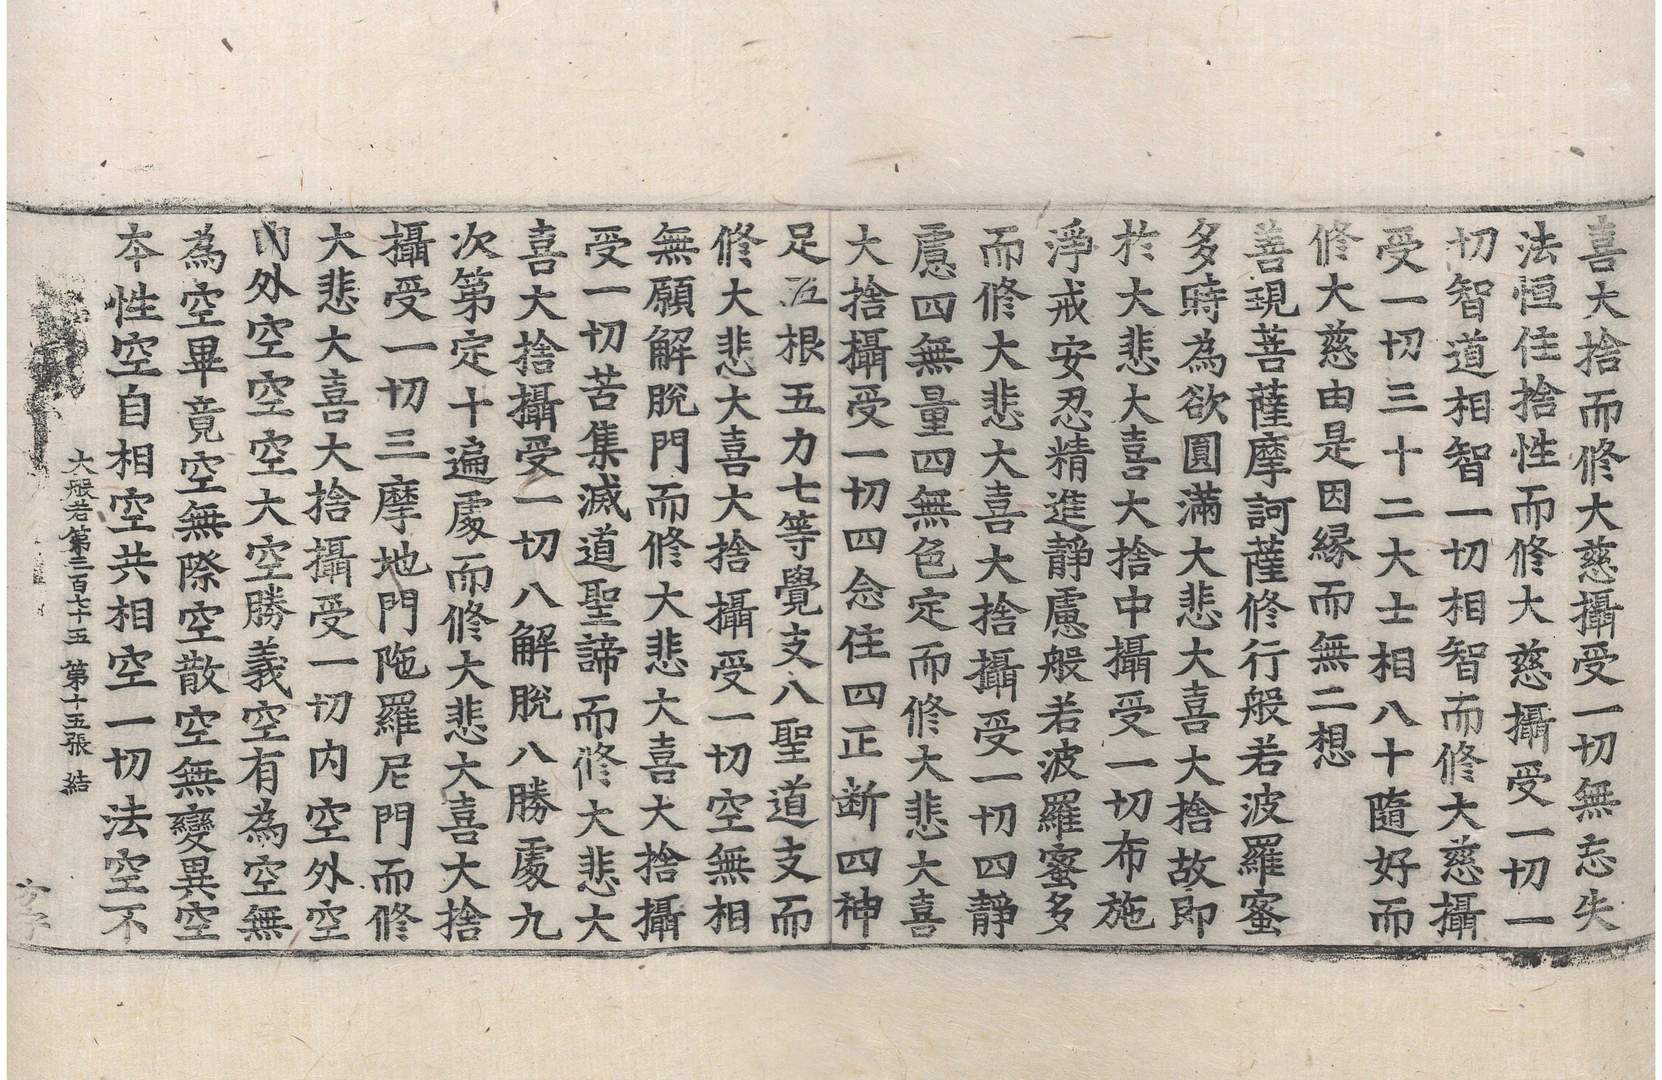 喜大捨而修大慈攝受一切無忘失
法恒住捨性而修大慈攝受一切一
切智道相智一切相智而修大慈攝
受一切三十二大士相八十隨好而
修大慈由是因緣而無二想
善現菩薩摩訶薩修行般若波羅蜜
多時為欲圓滿大悲大喜大捨故即
於大悲大喜大捨中攝受一切布施
淨戒安忍精進靜慮般若波羅蜜多
而修大悲大喜大捨攝受一切四靜
慮四無量四無色定而修大悲大喜
大捨攝受一切四念住四正断四神
足五根五力七等覺支八聖道支而
修大悲大喜大捨攝受一切空無相
無願解脫門而修大悲大喜大捨攝
受一切苦集滅道聖諦而修大悲大
喜大捨攝受一切八解脫八勝處九
次第定十遍處而修大悲大喜大捨
攝受一切三摩地門陁羅尼門而修
大悲大喜大捨攝受一切内空外空
内外空空空大空勝義空有為空無
為空畢竟空無際空散空無變異空
本性空自相空共相空一切法空不
大般若第三百七十五 第十五張 結